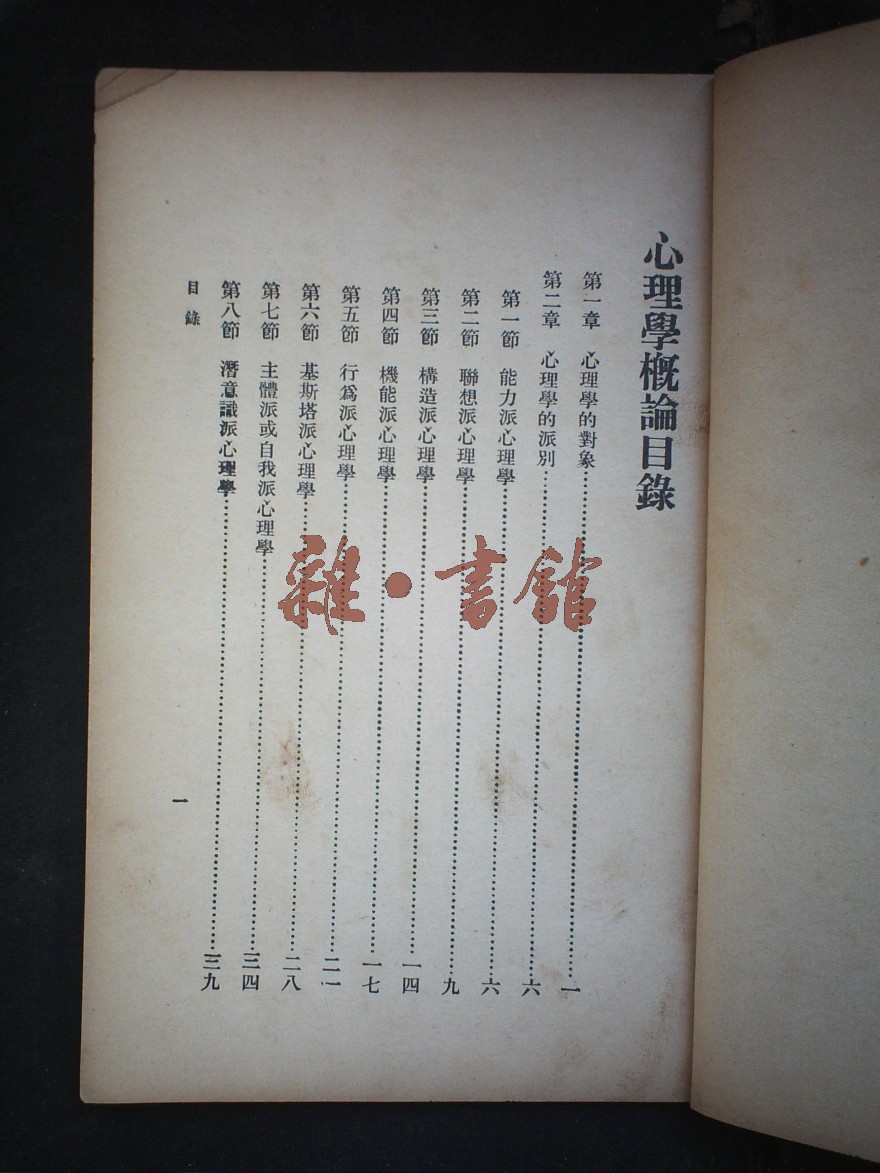 心理學概論目錄
第一章 心理學的對象……一
第二章 心理學的派別……六
第一節 能力派心理學……六
第二節 聯想派心理學……九
第三節 構造派心理學……一四
第四節 機能派心理學……一七
第五節 行爲派心理學……二一
第六節 基斯塔派心理學……二八
第七節 主體派或自我派心理學……三四
第八節 潛意識派心理學……三九
目錄
一
雜·書館